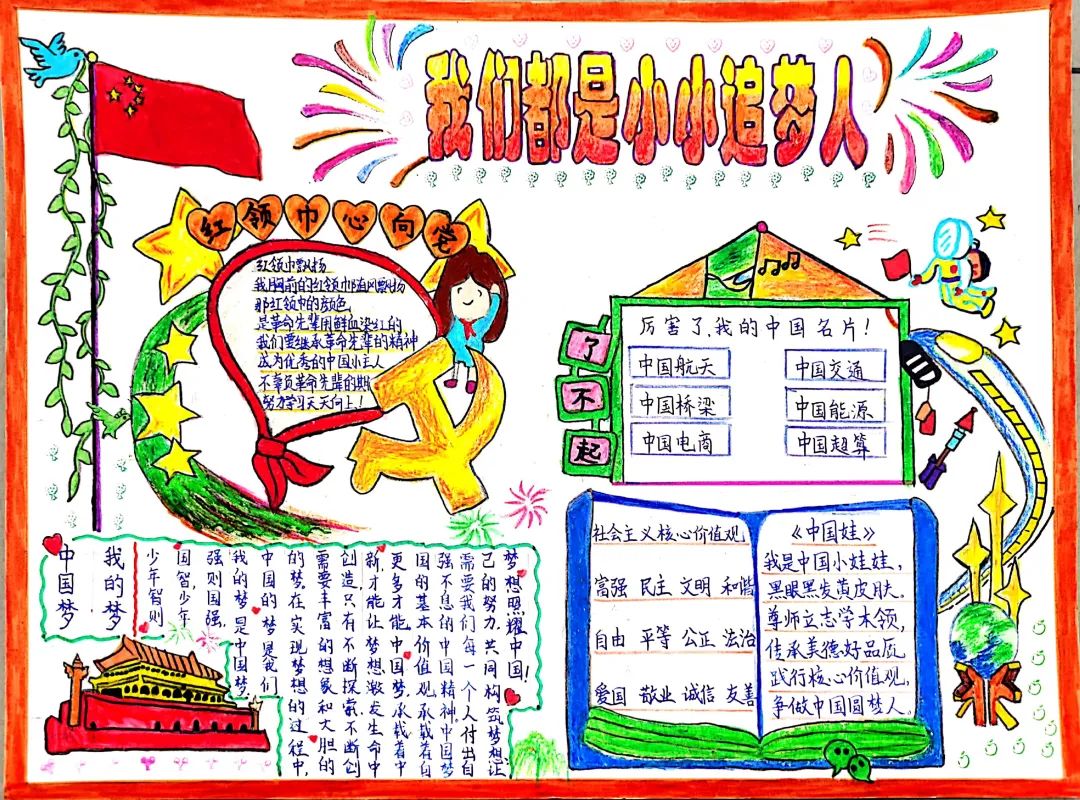 我们都是小小追梦人
红领巾心向党
红领巾飘扬
我胸前的红领巾随风飘扬
那红领巾的颜色
是革命先辈用鲜血染红的
我们要继承革命先辈的精神
成为优秀的中国小主人
不辜负革命先辈的期
努力学习天天向上！
了不起
厉害了，我的中国名片！
中国航天
中国交通
中国桥梁
中国能源
中国电商
中国超算
中国梦
我的梦
少年智则
国智，少年
强则国强，
我的梦是中国梦，
中国的梦是我们
的梦在实现梦想的过程中，
需要丰富的想象和大胆的
创造，只有不断探索不断创
新，才能让梦想激发生命中
更多才能，中国梦，承载着中
国的基本价值观，承载着自
强不息的中国精神，中国梦
需要我们每一个人付出自
己的努力，共同构筑梦想，让
梦想照耀中国！
社会主义核心价值观
富强 民主 文明 和谐
自由 平等 公正 法治
爱国 敬业 诚信 友善
《中国娃》
我是中国小娃娃，
黑眼黑发黄皮肤。
尊师立志学本领，
传承美德好品质
践行核心价值观，
争做中国圆梦人。